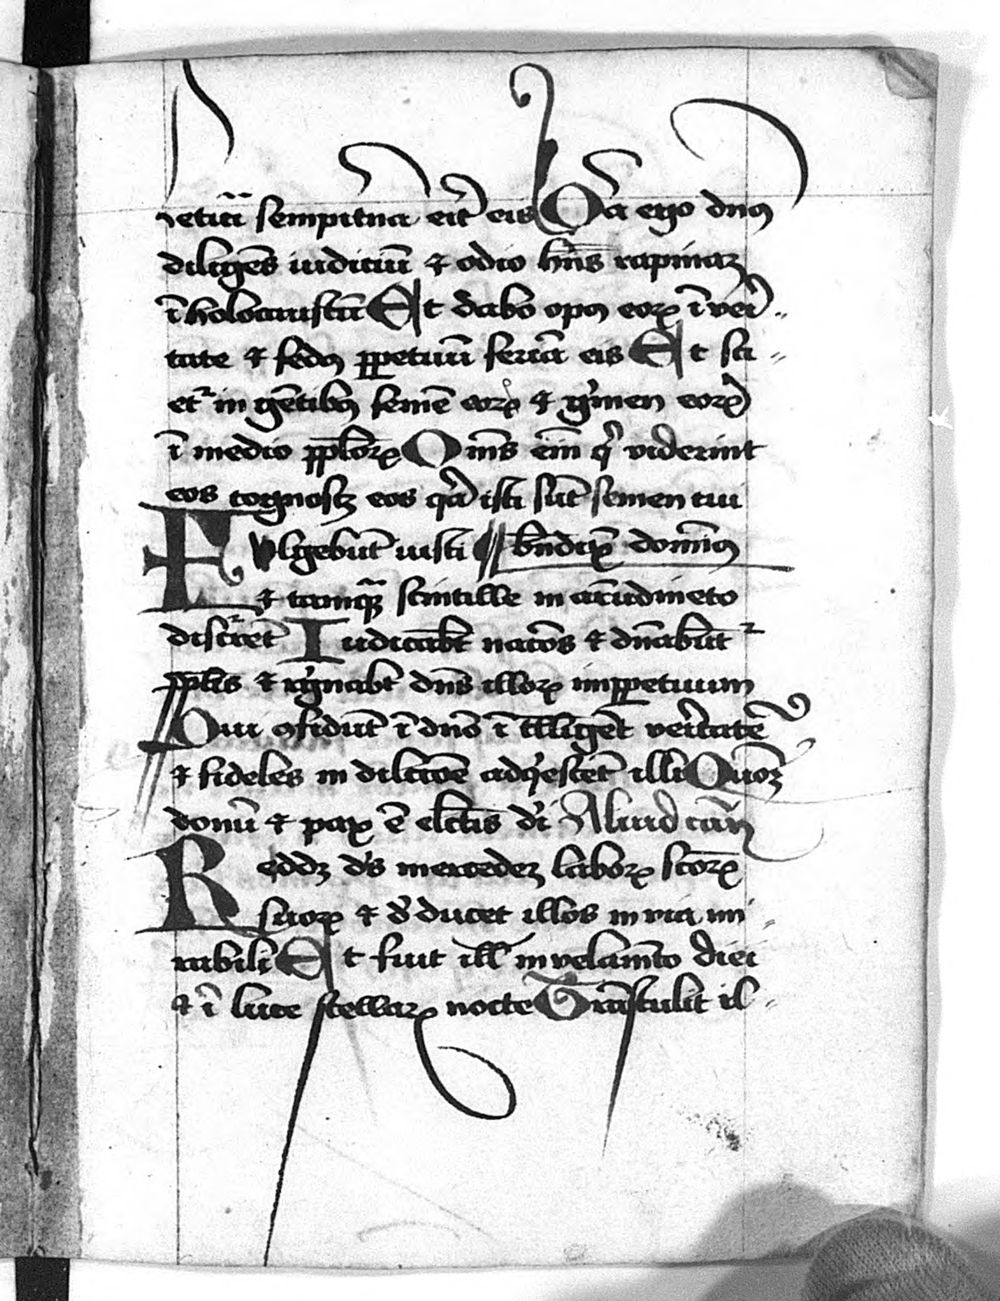 Letiа̄ sempit̄na er̄it eis Qi̅a ego dn̄s
diligēs iudiciū ⁊ odio hn̄s rapinaꝫ
ī holocaustū Et dabo opꝰ eoꝝ ī veri-
tate ⁊ fedꝰ ꝑpetuū feriā eis Et sci-
etᷣ in gētibꝰ semē eoꝝ ⁊ gͥmen eoꝝ
ī medio pp̄loꝝ Om̄s em̄ qͥ viderint
eos cognoscēt eos qͣ isti sūt semen cui
Fulgebūt iusti bn̄dixͭ dominꝰ
⁊ tamqͣꝫ scintille in arūdineto
discᷣrēt Iudicabūt nacōes ⁊ dn̄abūtᷣ
pp̄lis ⁊ regnabit dn̄s illoꝝ inꝑpetuum
Qui ꝯfidūt ī dnō ītelligēt veritatē
⁊ fideles in dilcōe adqͥescēt illi Quoꝫ
donū ⁊ pax ē elc̄tis dei Aliud cāꝫ
Reddꝫ ds̄ mercedeꝫ laboꝝ scōꝝ
suoꝝ ⁊ deducet illos in via mi-
rabili Et fuit ill̄ in velamēto diei
⁊ ī luce stellaꝝ nocte Trāstulit il-